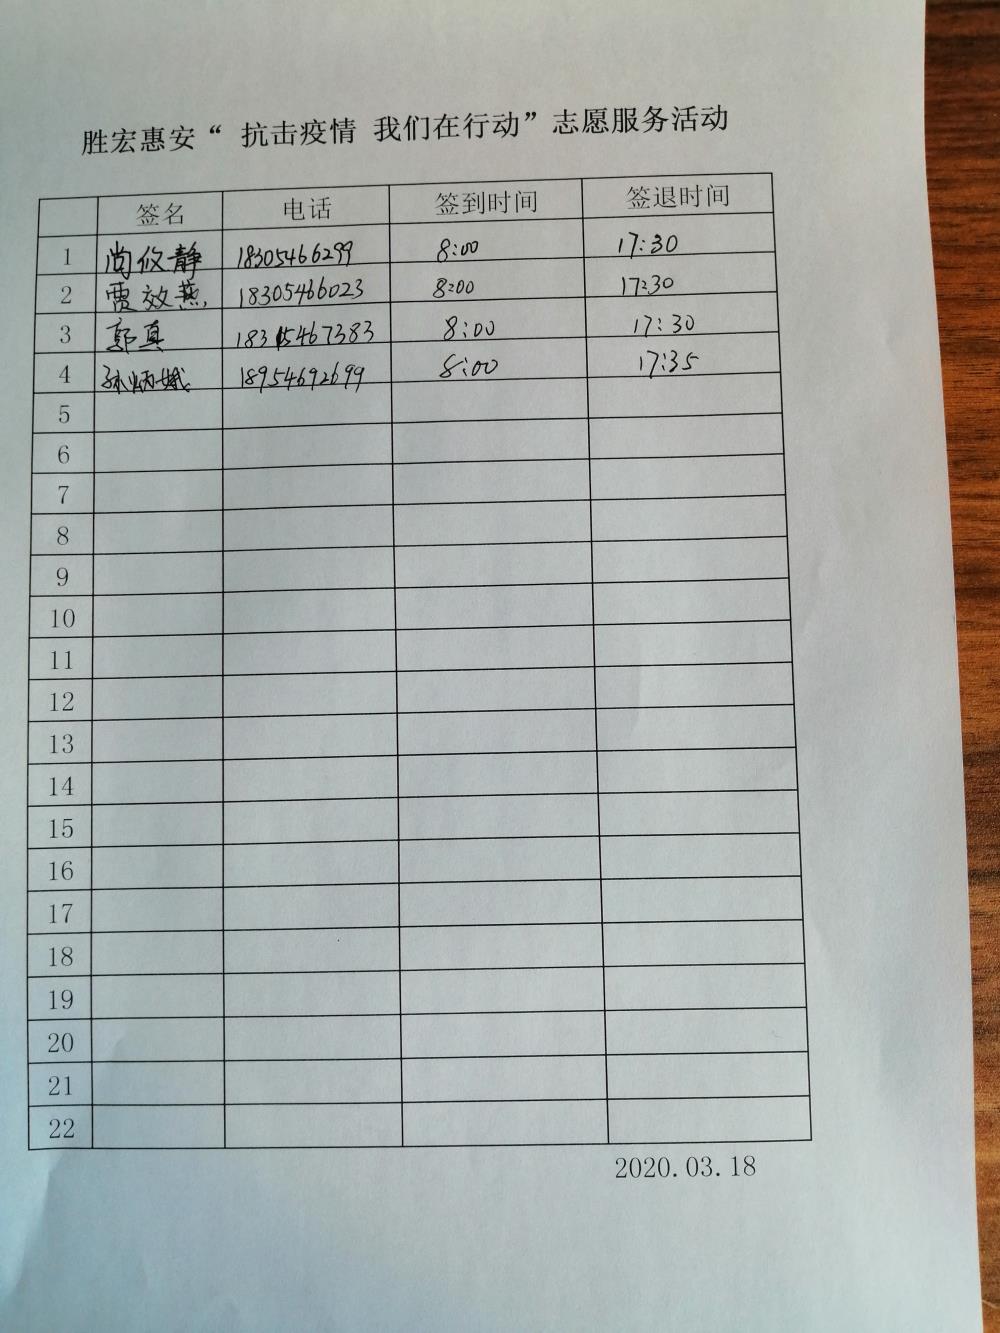 胜宏惠安“ 抗击疫情 我们在行动”志愿服务活动
签名 电话 签到时间 签退时间
1 尚攸静 18305466299 8:00 17:30
2 贾效燕 18305466023 8:00 17:30
3 郭真 18315467383 8:00 17:30
4 孙炳娥 18954692699 8:00 17:35
5
6
7
8
9
10
11
12
13
14
15
16
17
18
19
20
21
22
2020.03.18